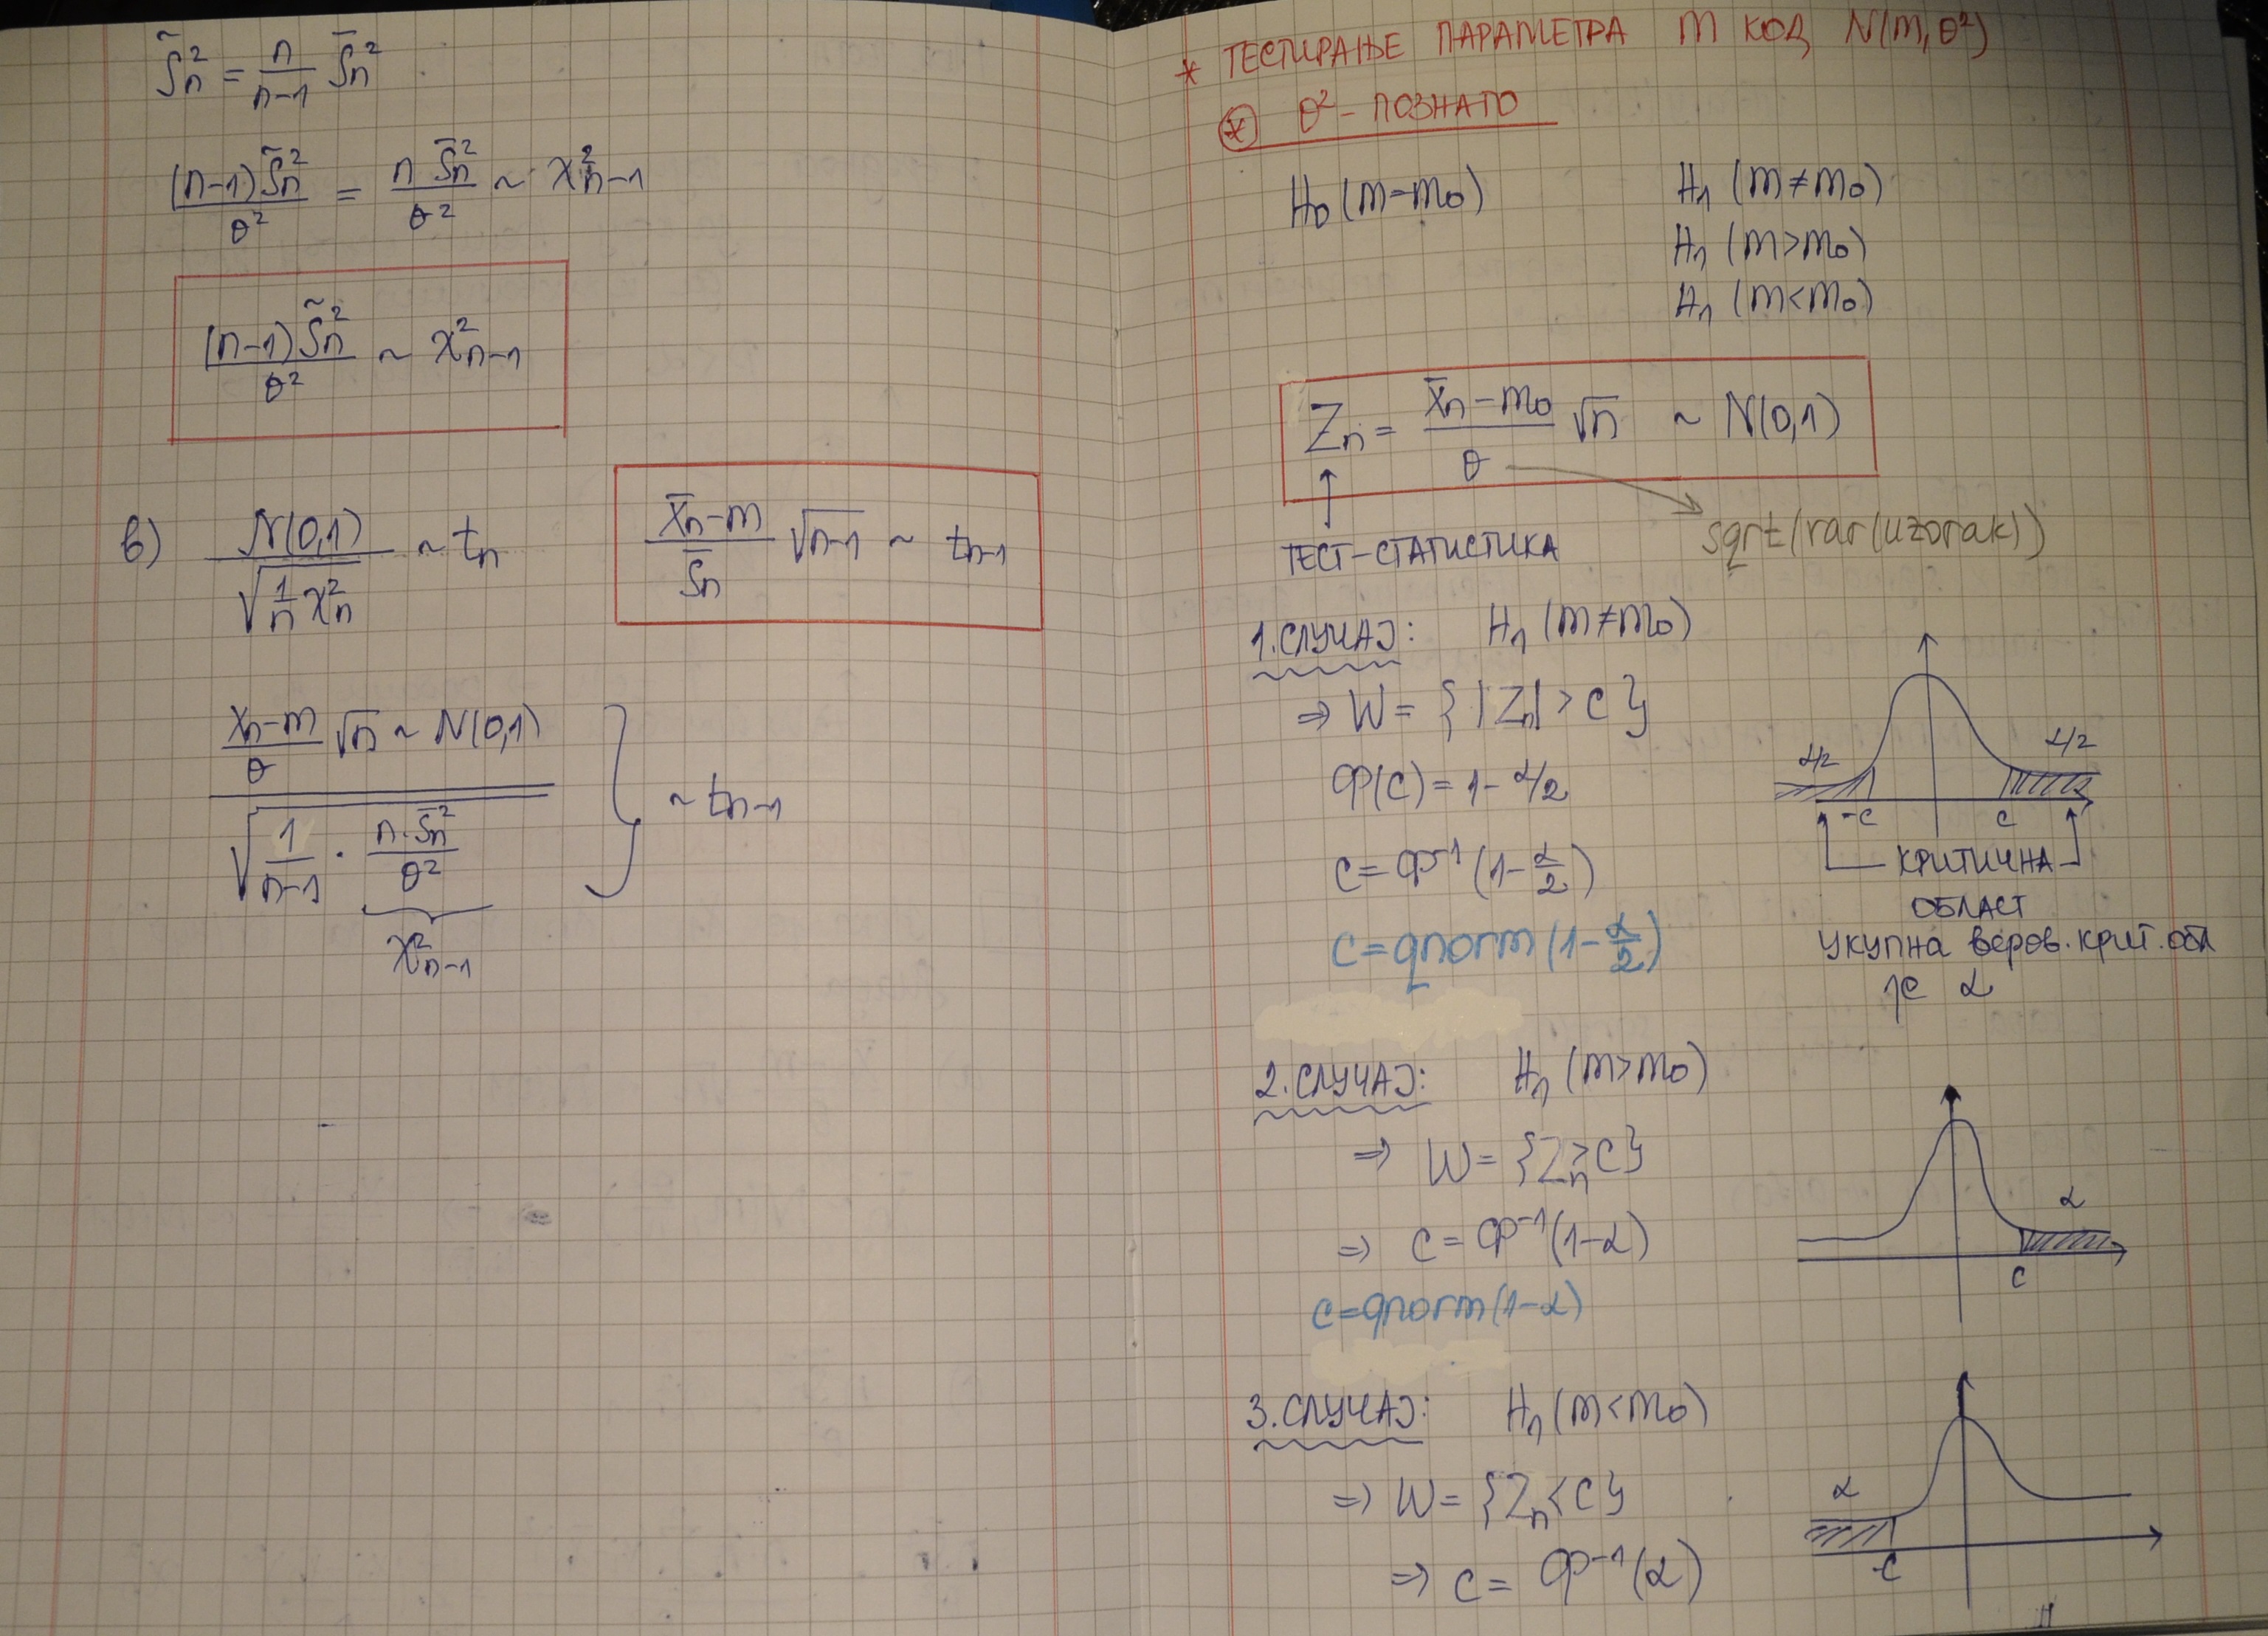 S̃n² = n/(n-1) S̄n²
(n-1)S̃n²/θ² = n S̄n²/θ² ~ χ²n-1
(n-1)S̃n²/θ² ~ χ²n-1
в) N(0,1)/√(1/n χ²n) ~ tn
(X̄n-m)/S̄n √n-1 ~ tn-1
(Xn-m)/θ √n ~ N(0,1)
√(1/(n-1) · n·S̄n²/θ²)
~ tn-1
χ²n-1
* ТЕСТИРАЊЕ ПАРАМЕТРА m КОД N(m,θ²)
* θ² - ПОЗНАТО
H0(m=m0) H1(m≠m0)
H1(m>m0)
H1(m<m0)
Zn = (X̄n-m0)/θ √n ~ N(0,1)
sqrt(var(uzorak))
ТЕСТ-СТАТИСТИКА
1.СЛУЧАЈ: H1(m≠m0)
⇒ W = {|Zn|>c}
Φ(c) = 1-α/2
c = Φ⁻¹(1-α/2)
c = qnorm(1-α/2)
α/2 α/2
-c c
КРИТИЧНА
ОБЛАСТ
УКУПНА вероВ.КРИТ.ОБЛ
је α
2.СЛУЧАЈ: H1(m>m0)
⇒ W = {Zn>c}
⇒ c = Φ⁻¹(1-α)
c=qnorm(1-α)
α
c
3.СЛУЧАЈ: H1(m<m0)
⇒ W = {Zn<c}
⇒ c = Φ⁻¹(α)
α
-c